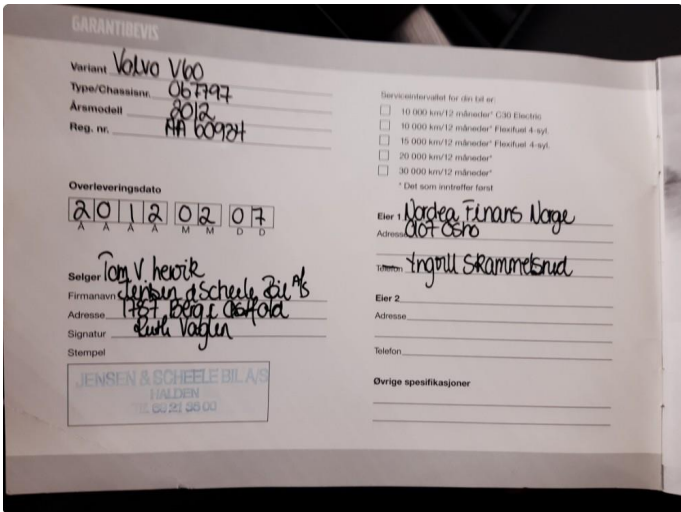 GARANTIBEVIS
Variant Volvo V60
Type/Chassisnr. 067797
Årsmodell 2012
Reg. nr. AA 60924
Overleveringsdato
2 0 1 2 0 2 0 7
Å Å Å Å M M D D
Selger Tom V. henrik
Firmanavn Jensen & Scheele Bil A/S
Adresse 1787 Berg i Østfold
Signatur Ruth Vaglen
Stempel
JENSEN & SCHEELE BIL A/S
HALDEN
Tlf. 69 21 35 00
Serviceintervallet for din bil er:
10 000 km/12 måneder* C30 Electric
10 000 km/12 måneder* Flexifuel 4-syl.
15 000 km/12 måneder* Flexifuel 4-syl.
20 000 km/12 måneder*
30 000 km/12 måneder*
* Det som inntreffer først
Eier 1 Nordea Finans Norge
Adresse 0107 Oslo
Telefon Yngvill Skammelsrud
Eier 2
Adresse
Telefon
Øvrige spesifikasjoner